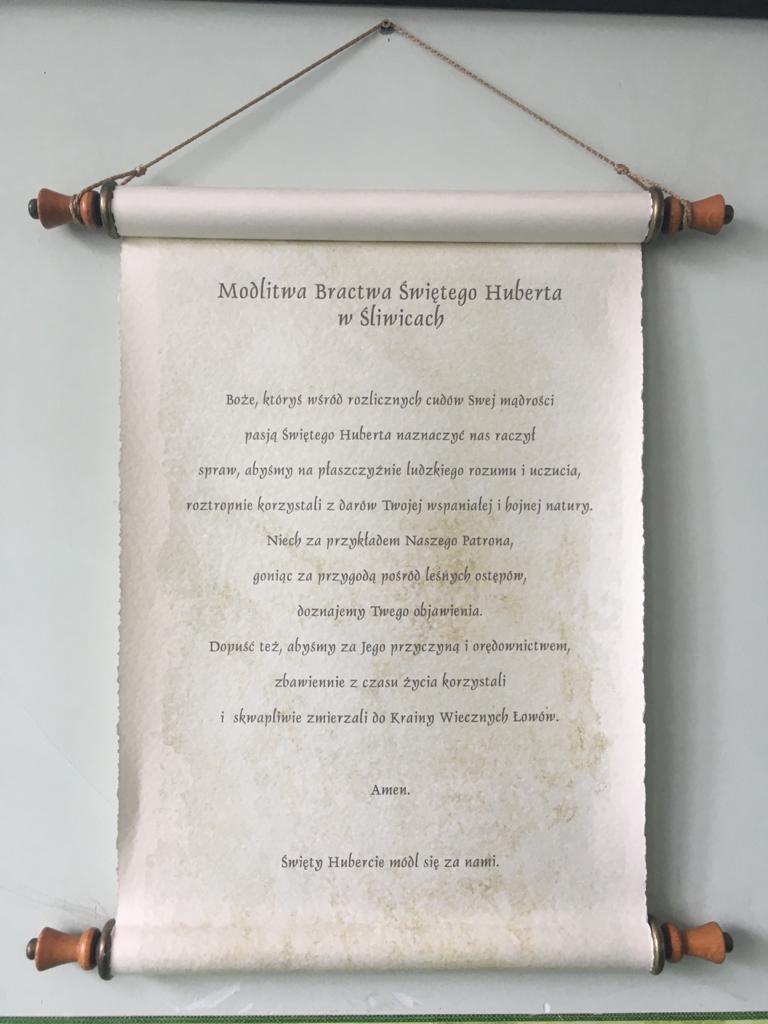 Modlitwa Bractwa Świętego Huberta
w Śliwicach
Boże, któryś wśród rozlicznych cudów Swej mądrości
pasją Świętego Huberta naznaczyć nas raczył
spraw, abyśmy na płaszczyźnie ludzkiego rozumu i uczucia,
roztropnie korzystali z darów Twojej wspaniałej i hojnej natury.
Niech za przykładem Naszego Patrona,
goniąc za przygodą pośród leśnych ostępów,
doznajemy Twego objawienia.
Dopuść też, abyśmy za Jego przyczyną i orędownictwem,
zbawiennie z czasu życia korzystali
i skwapliwie zmierzali do Krainy Wiecznych Łowów.
Amen.
Święty Hubercie módl się za nami.